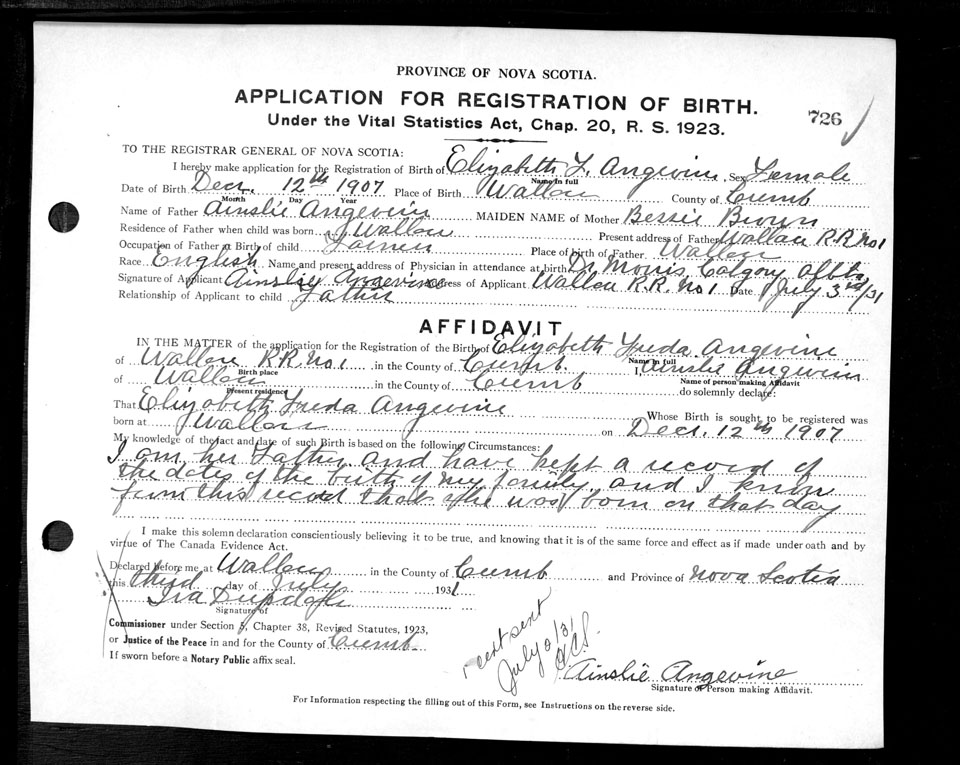 PROVINCE OF NOVA SCOTIA.
APPLICATION FOR REGISTRATION OF BIRTH.
726
Under the Vital Statistics Act, Chap. 20, R. S. 1923.
TO THE REGISTRAR GENERAL OF NOVA SCOTIA:
I hereby make application for the Registration of Birth of Elizabeth F. Angevine Sex Female
Name in full
Date of Birth Decr. 12th 1907 Place of Birth Wallace County of Cumb
Month Day Year
Name of Father Ainslie Angevine MAIDEN NAME of Mother Bessie Brown
Residence of Father when child was born Wallace Present address of Father Wallace R.R. No 1
Occupation of Father at Birth of child Farmer Place of birth of Father Wallace
Race English Name and present address of Physician in attendance at birth Dr Morris, Calgary Albta
Signature of Applicant Ainsley Angevine Address of Applicant Wallace R.R. No 1 Date July 3rd/31
Relationship of Applicant to child Father
AFFIDAVIT
IN THE MATTER of the application for the Registration of the Birth of Elizabeth Freda Angevine
Name in full
of Wallace R.R. No 1 in the County of Cumb. I, Ainslie Angevin
Birth place Name of person making Affidavit
of Wallace in the County of Cumb do solemnly declare:
Present residence
That Elizabeth Freda Angevine Whose Birth is sought to be registered was
born at Wallace on Decr. 12th 1907
My knowledge of the fact and date of such Birth is based on the following Circumstances:
I am her Father and have kept a record of
the dates of the birth of my family and I know
from this record that she was born on that day
I make this solemn declaration conscientiously believing it to be true, and knowing that it is of the same force and effect as if made under oath and by
virtue of The Canada Evidence Act.
Declared before me at Wallace in the County of Cumb and Province of Nova Scotia
this third day of July 1931.
Ira
Signature of
Commissioner under Section 5, Chapter 38, Revised Statutes, 1923,
or Justice of the Peace in and for the County of Cumb.
If sworn before a Notary Public affix seal.
cert sent
July 8/31
Ainslie Angevine
Signature of Person making Affidavit.
For Information respecting the filling out of this Form, see Instructions on the reverse side.